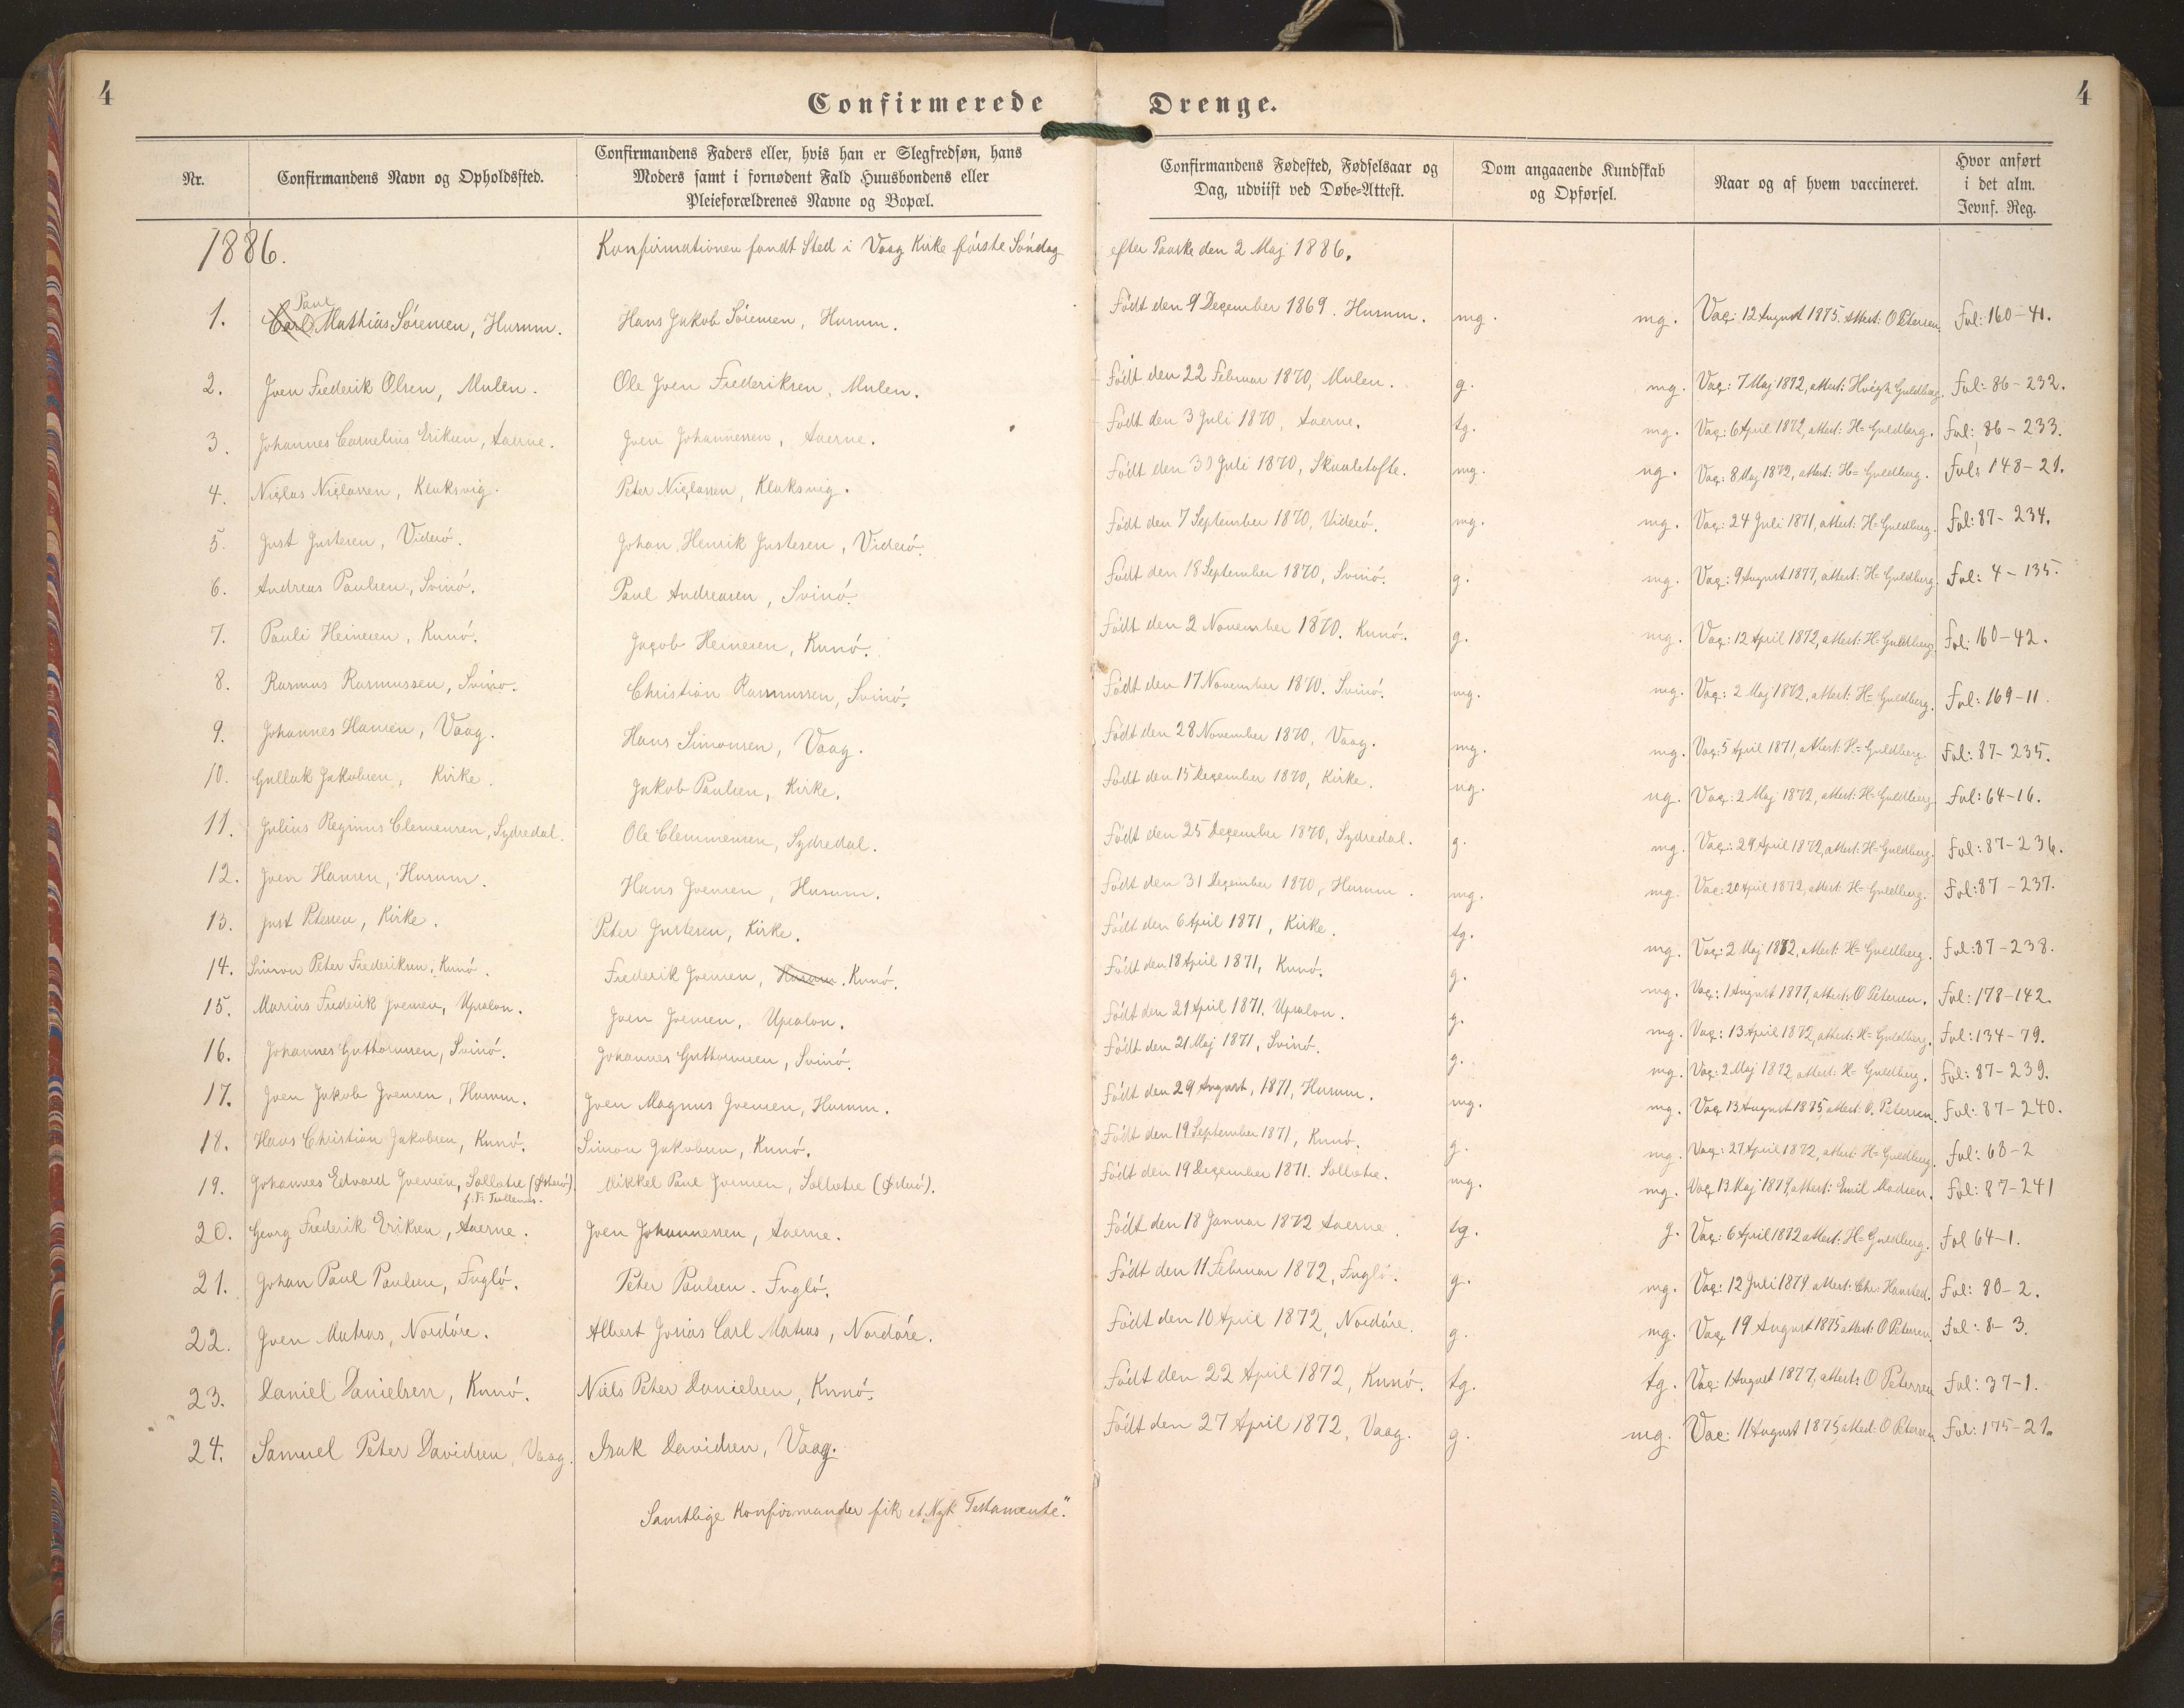 4
Confirmerede Drenge.
4
Nr.
Confirmandens Navn og Opholdssted.
Confirmandens Faders eller, hvis han er Slegfredsøn, hans
Moders samt i fornødent Fald Huusbondens eller
Pleieforældrenes Navne og Bopæl.
Confirmandens Fødested, Fødselsaar og
Dag, udviist ved Døbe=Attest.
Dom angaaende Kundskab
og Opførsel.
Naar og af hvem vaccineret.
Hvor anført
i det alm.
Jevnf. Reg.
1886. Konfirmationen fandt Sted i Vaag Kirke første Søndag efter Paaske den 2 Maj 1886.
Paul
1. Carl Mathias Sørensen, Husum. Hans Jakob Sørensen, Husum. Født den 9 December 1869. Husum. mg. mg. Vac: 12 August 1875. attest: O Petersen. Fol: 160-41.
2. Joen Frederik Olsen, Mulen. Ole Joen Frederiksen, Mulen. Født den 22 Februar 1870, Mulen. g. mg. Vac: 7 Maj 1872, attest: Høegh Guldberg. Fol: 86-232.
3. Johannes Cornelius Eriksen, Aaerne. Joen Johannessen, Aaerne. Født den 3 Juli 1870, Aaerne. tg. mg. Vac: 6 April 1872, attest: H= Guldberg. Fol: 86-233.
4. Niclas Niclassen, Klaksvig. Peter Niclassen, Klaksvig. Født den 30 Juli 1870, Skaaletofte. mg. ug. Vac: 8 Maj 1872, attest: H= Guldberg. Fol: 148-21.
5. Just Justesen, Viderø. Johan Henrik Justesen, Viderø. Født den 7 September 1870, Viderø. mg. mg. Vac: 24 Juli 1871, attest: H= Guldberg. Fol: 87-234.
6. Andreas Paulsen, Svinø. Paul Andreasen, Svinø. Født den 18 September 1870, Svinø. g. mg. Vac: 9 August 1877, attest: H= Guldberg. Fol: 4-135.
7. Pauli Heinesen, Kunø. Jacob Heinesen, Kunø. Født den 2 November 1870. Kunø. g. mg. Vac: 12 April 1872, attest: H= Guldberg. Fol: 160-42.
8. Rasmus Rasmussen, Svinø. Christian Rasmussen, Svinø. Født den 17 November 1870. Svinø. mg. mg. Vac: 2 Maj 1872, attest: H= Guldberg. Fol: 169-11.
9. Johannes Hansen, Vaag. Hans Simonsen, Vaag. Født den 28 November 1870, Vaag. mg. mg. Vac: 5 April 1871, attest: H= Guldberg. Fol: 87-235.
10. Gullak Jakobsen, Kirke. Jakob Paulsen, Kirke. Født den 15 December 1870, Kirke. ug. ug. Vac: 2 Maj 1872, attest: H= Guldberg. Fol: 64-16.
11. Julius Reginus Clemensen, Sydredal. Ole Clemmensen, Sydredal. Født den 25 December 1870, Sydredal. g. mg. Vac: 29 April 1872, attest: H= Guldberg. Fol: 87-236.
12. Joen Hansen, Husum. Hans Joensen, Husum. Født den 31 December 1870, Husum. mg. mg. Vac: 20 April 1872, attest: H= Guldberg. Fol: 87-237.
13. Just Petersen, Kirke. Peter Justesen, Kirke. Født den 6 April 1871, Kirke. tg. mg. Vac: 2 Maj 1872, attest: H= Guldberg. Fol: 87-238.
14. Simon Peter Frederiksen, Kunø. Frederik Joensen, Husum. Kunø. Født den 18 April 1871, Kunø. g. mg. Vac: 1 August 1877, attest: O Petersen. Fol: 178-142.
15. Marius Frederik Joensen, Upsalon. Joen Joensen, Upsalon. Født den 21 April 1871. Upsalon. g. mg. Vac: 13 April 1872, attest: H= Guldberg. Fol: 134-79.
16. Johannes Guttormsen, Svinø. Johannes Guttormsen, Svinø. Født den 21 Maj 1871, Svinø. g. mg. Vac: 2 Maj 1872, attest: H= Guldberg. Fol: 87-239.
17. Joen Jakob Joensen, Husum. Joen Magnus Joensen, Husum. Født den 29 August, 1871, Husum. mg. mg. Vac 13 August 1875 attest: O. Petersen. Fol: 87-240.
18. Hans Christian Jakobsen, Kunø. Simon Jakobsen, Kunø. Født den 19 September 1871, Kunø. g. mg. Vac: 27 April 1872, attest: H= Guldberg. Fol: 63-2
19. Johannes Edvard Joensen, Solletre (Østerø). Mikkel Paul Joensen, Solletre (Østerø). Født den 19 December 1871. Solletre. mg. mg. Vac 13 Maj 1879, attest: Emil Madsen. Fol: 87-241
f: T:
20. Georg Frederik Eriksen, Aaerne. Joen Johannessen, Aaerne. Født den 18 Januar 1872 Aaerne. tg. g. Vac: 6 April 1872 attest: H= Guldberg. Fol 64-1.
21. Johan Paul Paulsen, Fuglø. Peter Paulsen. Fuglø. Født den 11 Februar 1872, Fuglø. g. mg. Vac: 12 Juli 1879 attest: Chr: Fol: 80-2.
22. Joen Matras, Nordøre. Albert Josias Carl Matras, Nordøre. Født den 10 April 1872, Nordøre. g. mg. Vac 19 August 1875 attest: O Petersen. Fol: 8-3.
23. Daniel Danielsen, Kunø. Niels Peter Danielsen, Kunø. Født den 22 April 1872, Kunø. tg. tg. Vac: 1 August 1877, attest: O Petersen Fol: 37-1.
24. Samuel Peter Davidsen, Vaag. Isak Davidsen, Vaag. Født den 27 April 1872, Vaag. g. mg. Vac: 11 August 1875 attest: O Petersen. Fol: 175-21.
Samtlige Konfirmander fik et „Nyt Testamente."